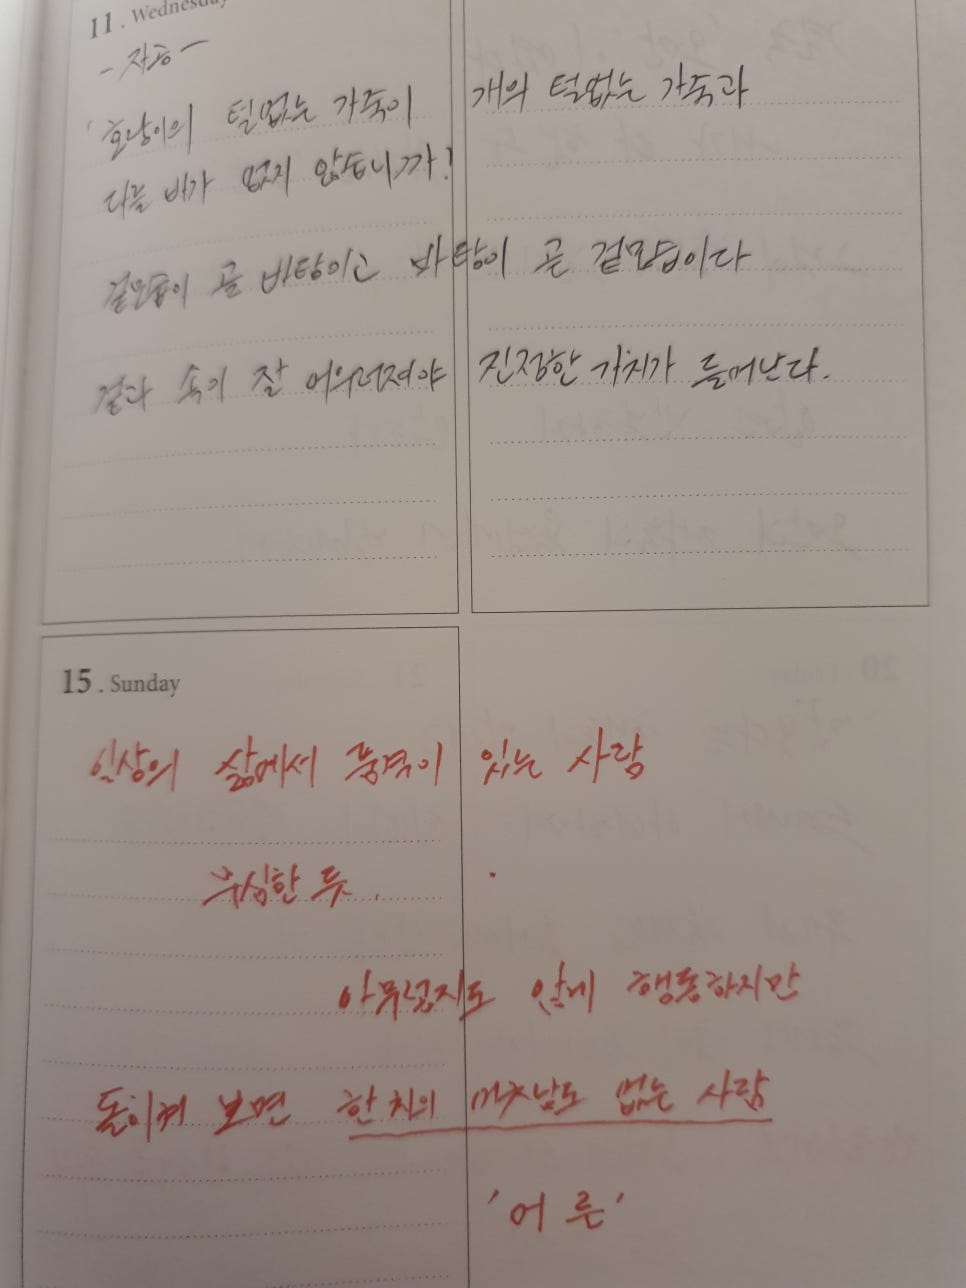 11. Wednesday
- 자공 -
'호랑이의 털없는 가죽이 개의 털없는 가죽과
다를 바가 없지 않습니까?
겉모습이 곧 바탕이고 바탕이 곧 겉모습이다
겉과 속이 잘 어우러져야 진정한 가치가 드러난다.
15. Sunday
일상의 삶에서 품격이 있는 사람
무심한 듯.
아무렇지도 않게 행동하지만
돌이켜 보면 한 치의 어긋남도 없는 사람
'어른'